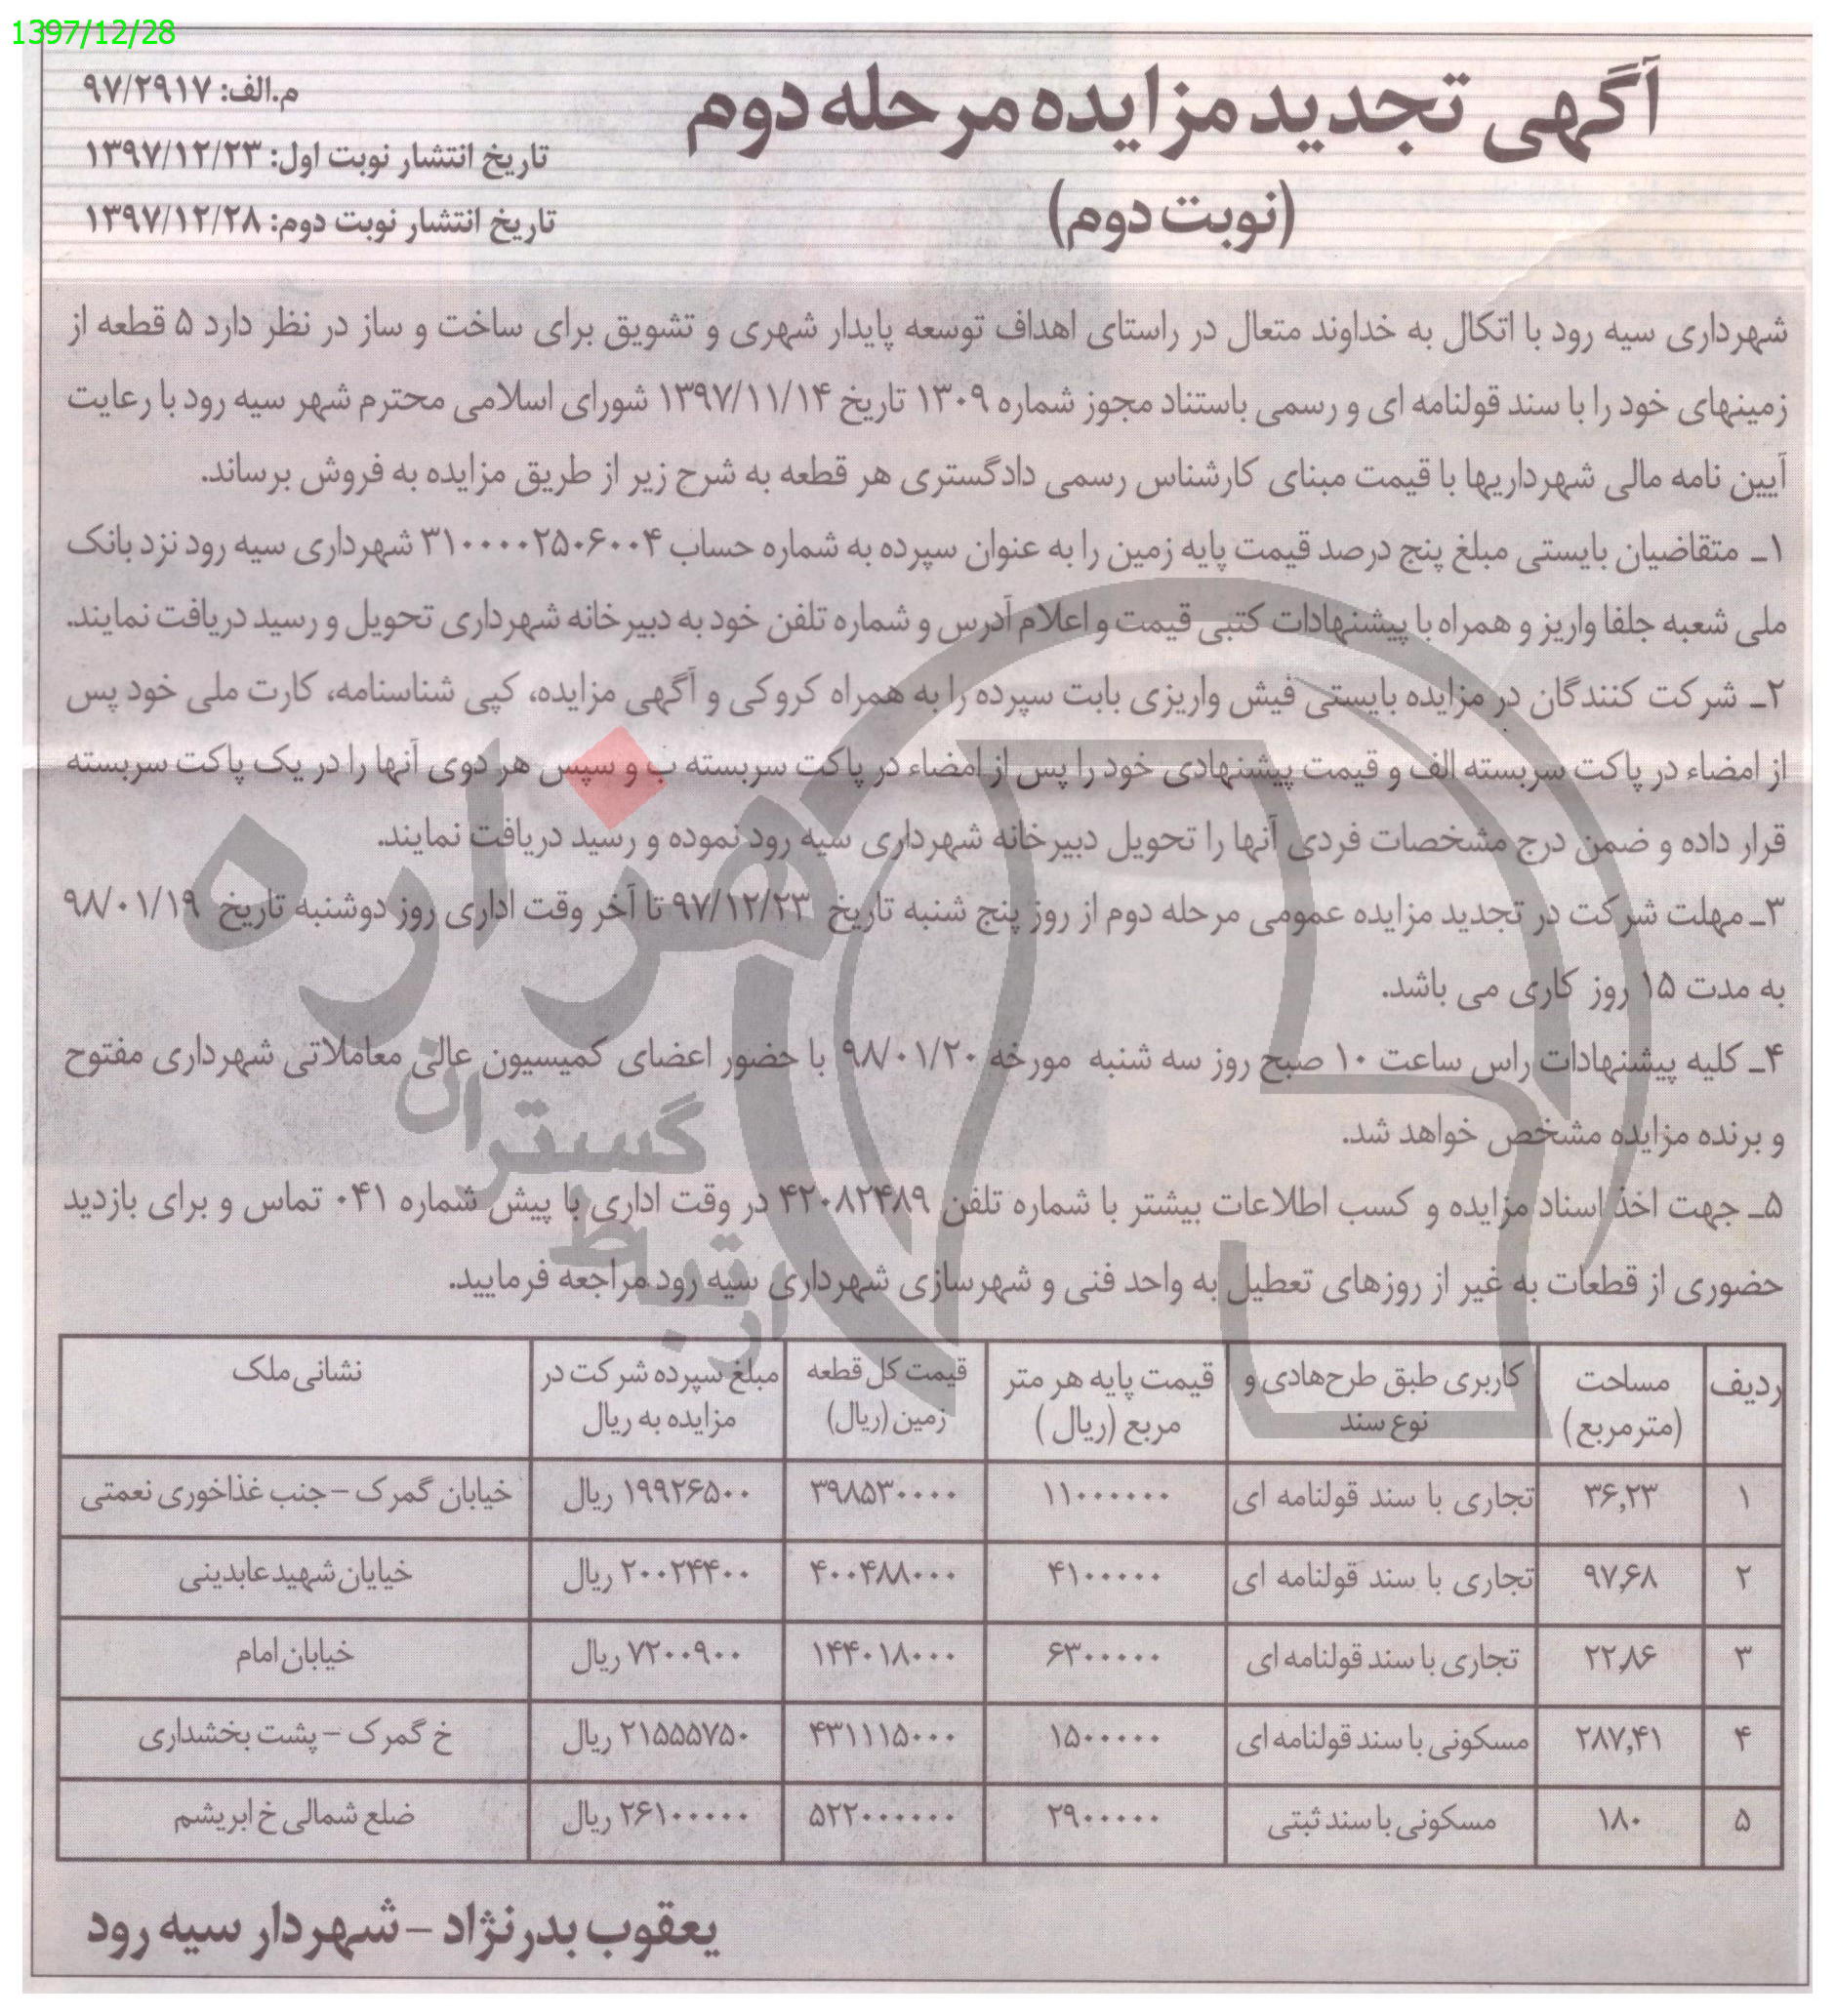 1397/12/28
آگهی تجدید مزایده مرحله دوم
(نوبت دوم)
م.الف: ۹۷/۲۹۱۷
تاریخ انتشار نوبت اول: ۱۳۹۷/۱۲/۲۳
تاریخ انتشار نوبت دوم: ۱۳۹۷/۱۲/۲۸
شهرداری سیه رود با اتکال به خداوند متعال در راستای اهداف توسعه پایدار شهری و تشویق برای ساخت و ساز در نظر دارد ۵ قطعه از
زمینهای خود را با سند قولنامه ای و رسمی باستناد مجوز شماره ۱۳۰۹ تاریخ ۱۳۹۷/۱۱/۱۴ شورای اسلامی محترم شهر سیه رود با رعایت
آیین نامه مالی شهرداریها با قیمت مبنای کارشناس رسمی دادگستری هر قطعه به شرح زیر از طریق مزایده به فروش برساند.
۱ـ متقاضیان بایستی مبلغ پنج درصد قیمت پایه زمین را به عنوان سپرده به شماره حساب ۳۱۰۰۰۰۲۵۰۶۰۰۴ شهرداری سیه رود نزد بانک
ملی شعبه جلفا واریز و همراه با پیشنهادات کتبی قیمت و اعلام آدرس و شماره تلفن خود به دبیرخانه شهرداری تحویل و رسید دریافت نمایند.
۲ـ شرکت کنندگان در مزایده بایستی فیش واریزی بابت سپرده را به همراه کروکی و آگهی مزایده، کپی شناسنامه، کارت ملی خود پس
از امضاء در پاکت سربسته الف و قیمت پیشنهادی خود را پس از امضاء در پاکت سربسته ب و سپس هر دوی آنها را در یک پاکت سربسته
قرار داده و ضمن درج مشخصات فردی آنها را تحویل دبیرخانه شهرداری سیه رود نموده و رسید دریافت نمایند.
۳ـ مهلت شرکت در تجدید مزایده عمومی مرحله دوم از روز پنج شنبه تاریخ ۹۷/۱۲/۲۳ تا آخر وقت اداری روز دوشنبه تاریخ ۹۸/۰۱/۱۹
به مدت ۱۵ روز کاری می باشد.
۴ـ کلیه پیشنهادات راس ساعت ۱۰ صبح روز سه شنبه مورخه ۹۸/۰۱/۲۰ با حضور اعضای کمیسیون عالی معاملاتی شهرداری مفتوح
و برنده مزایده مشخص خواهد شد.
۵ـ جهت اخذ اسناد مزایده و کسب اطلاعات بیشتر با شماره تلفن ۴۲۰۸۲۴۸۹ در وقت اداری با پیش شماره ۰۴۱ تماس و برای بازدید
حضوری از قطعات به غیر از روزهای تعطیل به واحد فنی و شهرسازی شهرداری سیه رود مراجعه فرمایید.
ردیف مساحت (مترمربع) کاربری طبق طرح‌هادی و نوع سند قیمت پایه هر متر مربع (ریال) قیمت کل قطعه زمین (ریال) مبلغ سپرده شرکت در مزایده به ریال نشانی ملک
۱ ۳۶,۲۳ تجاری با سند قولنامه ای ۱۱۰۰۰۰۰۰ ۳۹۸۵۳۰۰۰۰ ۱۹۹۲۶۵۰۰ ریال خیابان گمرک – جنب غذاخوری نعمتی
۲ ۹۷,۶۸ تجاری با سند قولنامه ای ۴۱۰۰۰۰۰ ۴۰۰۴۸۸۰۰۰ ۲۰۰۲۴۴۰۰ ریال خیایان شهید عابدینی
۳ ۲۲,۸۶ تجاری با سند قولنامه ای ۶۳۰۰۰۰۰ ۱۴۴۰۱۸۰۰۰ ۷۲۰۰۹۰۰ ریال خیابان امام
۴ ۲۸۷,۴۱ مسکونی با سند قولنامه ای ۱۵۰۰۰۰۰ ۴۳۱۱۱۵۰۰۰ ۲۱۵۵۵۷۵۰ ریال خ گمرک – پشت بخشداری
۵ ۱۸۰ مسکونی با سند ثبتی ۲۹۰۰۰۰۰ ۵۲۲۰۰۰۰۰۰ ۲۶۱۰۰۰۰۰ ریال ضلع شمالی خ ابریشم
یعقوب بدرنژاد – شهردار سیه رود
هزاره
گستران
ارتباط